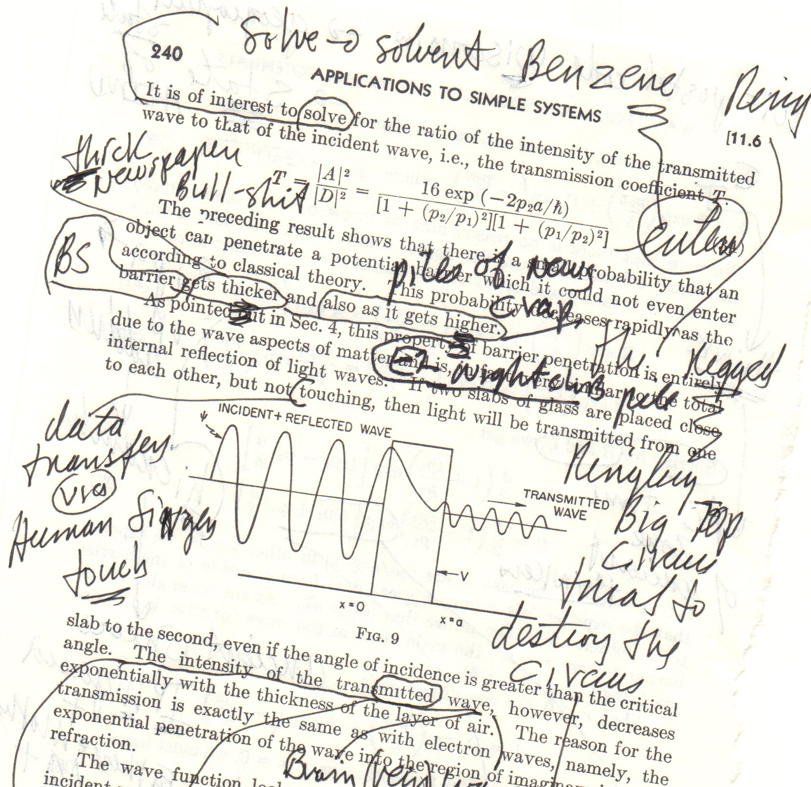 solve → solvent Benzene Ring
240
APPLICATIONS TO SIMPLE SYSTEMS
[11.6
It is of interest to solve for the ratio of the intensity of the transmitted
wave to that of the incident wave, i.e., the transmission coefficient T.
thick
Newspaper
Bull-shit
T = |A|²/|D|² = 16 exp (−2p₂a/ħ) / [1 + (p₂/p₁)²][1 + (p₁/p₂)²]
BS
The preceding result shows that there is a probability that an
object can penetrate a potential barrier which it could not even enter
according to classical theory. This probability decreases rapidly as the
barrier gets thicker and also as it gets higher.
piles of news
As pointed out in Sec. 4, this property of barrier penetration is entirely
due to the wave aspects of matter and is, in fact, very similar to the total
internal reflection of light waves. If two slabs of glass are placed close
to each other, but not touching, then light will be transmitted from one
The
data
transfer
via
Human Finger
touch
INCIDENT + REFLECTED WAVE
ψ
TRANSMITTED
WAVE
V
x=0
x=a
FIG. 9
Big Top
Circus
to
destroy the
Circus
slab to the second, even if the angle of incidence is greater than the critical
angle. The intensity of the transmitted wave, however, decreases
exponentially with the thickness of the layer of air. The reason for the
transmission is exactly the same as with electron waves, namely, the
exponential penetration of the wave into the region of
refraction.
The wave function
Brain
incident